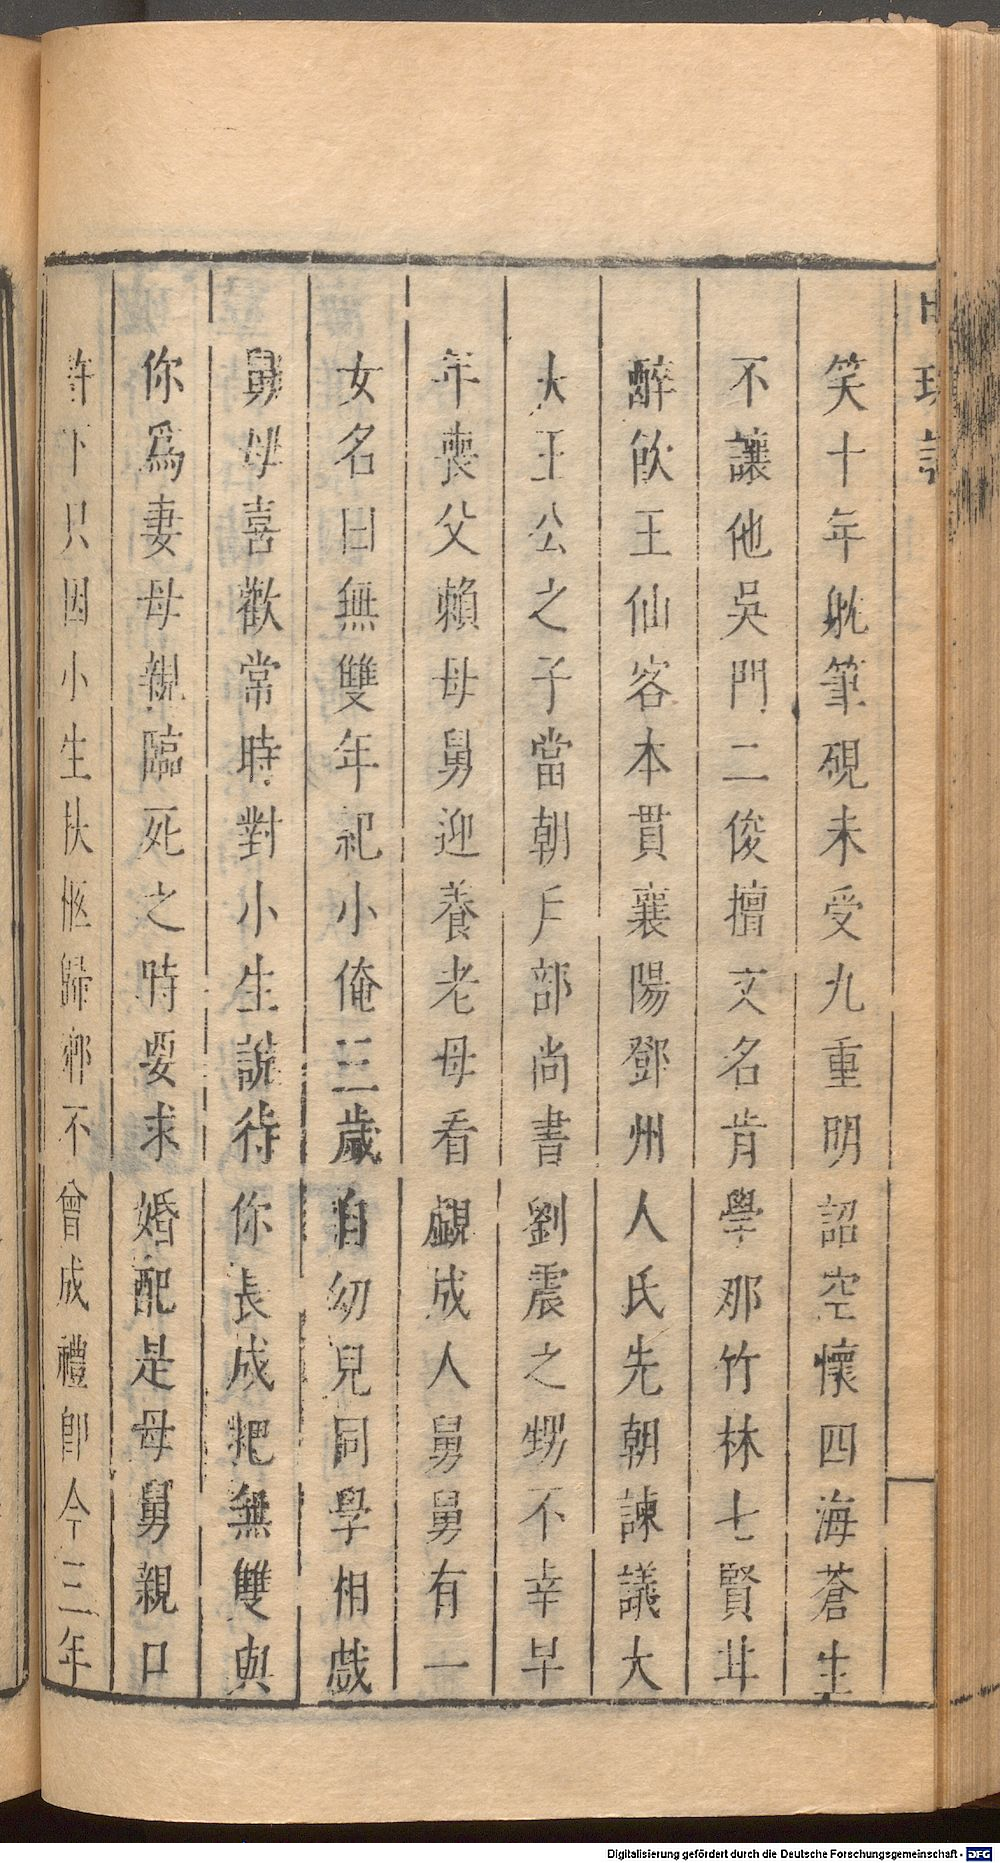 明珠記
笑十年躭筆硯未受九重明詔空懷四海蒼生
不讓他吳門二俊擅文名肯學那竹林七賢甘
醉飲王仙客本貫襄陽鄧州人氏先朝諫議大
夫王公之子當朝戶部尚書劉震之甥不幸早
年喪父賴母舅迎養老母看覷成人舅舅有一
女名曰無雙年祀小俺三歲自幼兒同學相戲
舅母喜歡常時對小生說待你長成把無雙與
你爲妻母親臨死之時要求婚配是母舅親口
許下只因小生扶柩歸鄉不曾成禮卽今三年
Digitalisierung gefördert durch die Deutsche Forschungsgemeinschaft - DFG